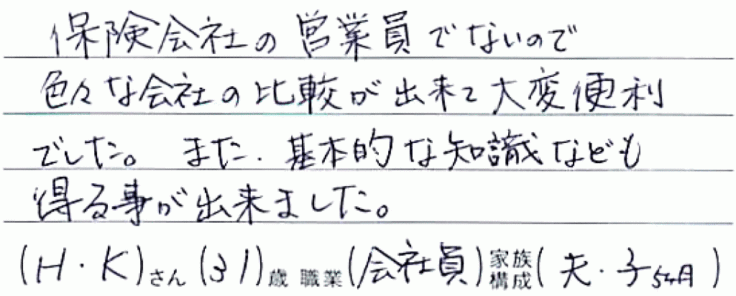 保険会社の営業員でないので
色々な会社の比較が出来て大変便利
でした。また、基本的な知識なども
得る事が出来ました。
(H・K)さん(31)歳 職業(会社員)家族構成(夫・子5ヶ月)